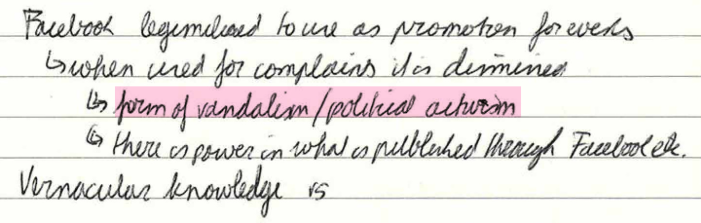 Facebook legimitised to use as promotion for events
↳ when used for complains it is dismissed
↳ form of vandalism/political activism
↳ there is power in what is published through Facebook etc.
Vernacular knowledge vs